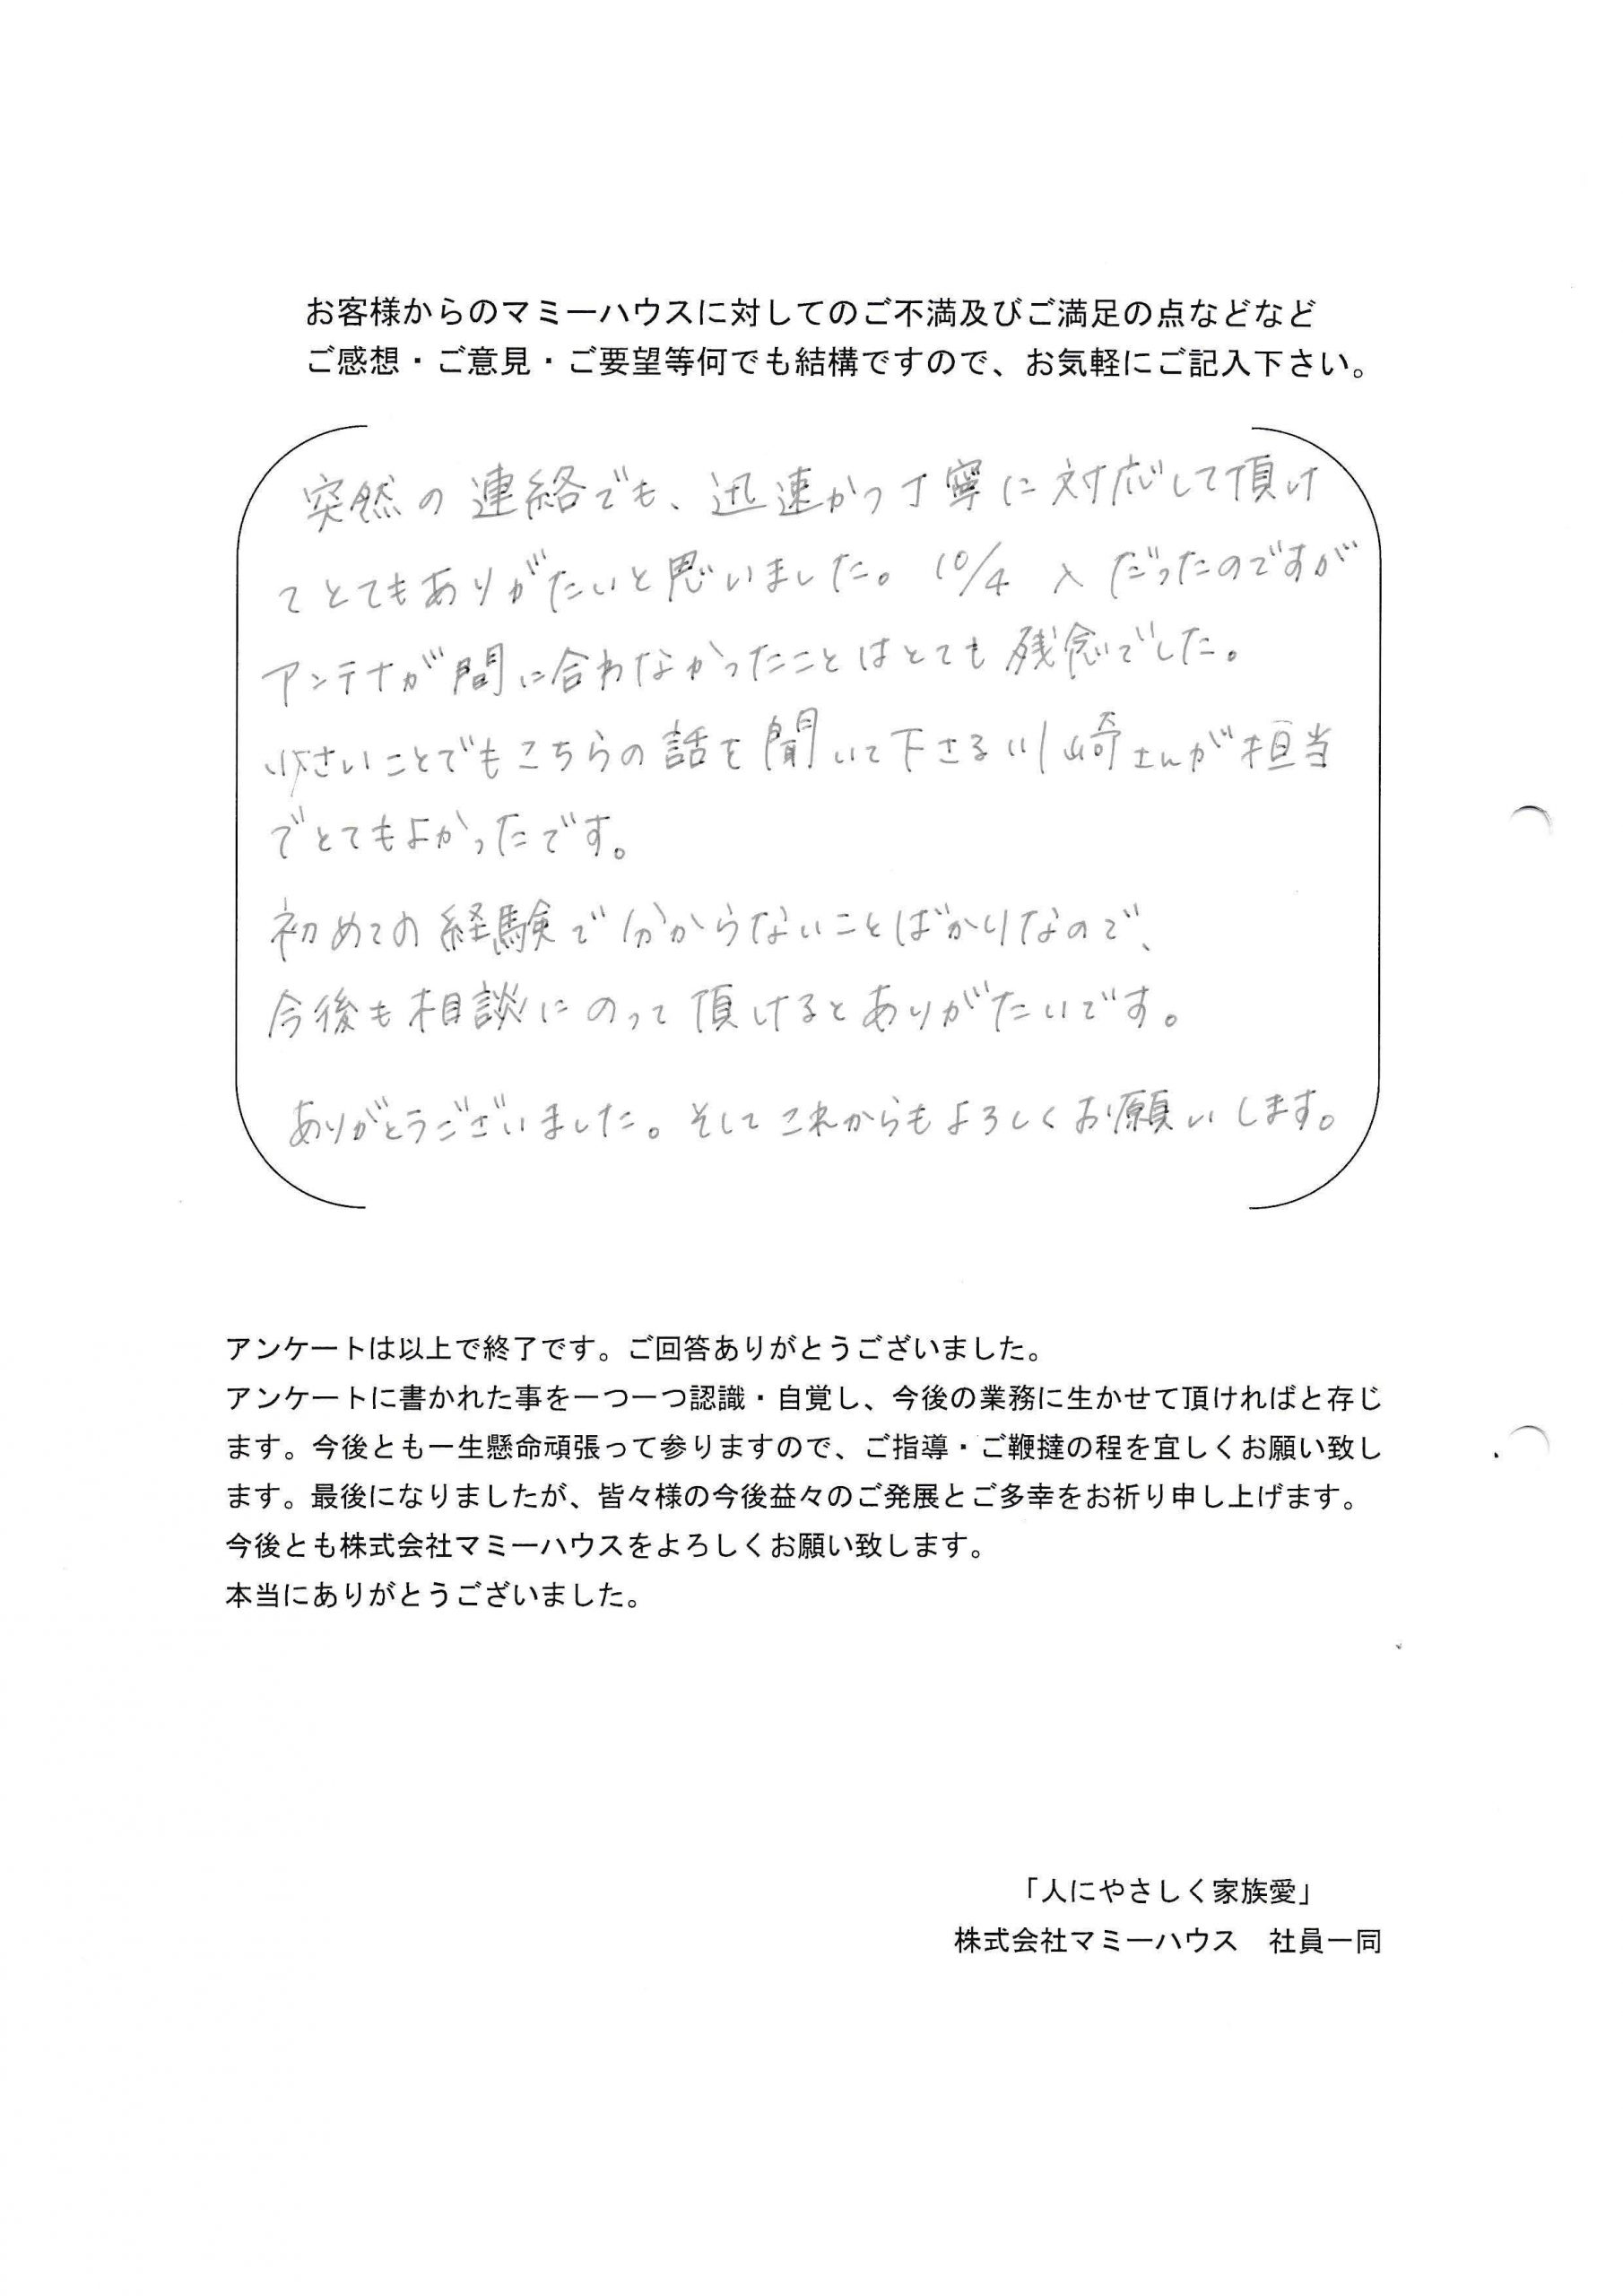 お客様からのマミーハウスに対してのご不満及びご満足の点などなど
ご感想・ご意見・ご要望等何でも結構ですので、お気軽にご記入下さい。
突然の連絡でも、迅速かつ丁寧に対応して頂け
てとてもありがたいと思いました。10/4 入だったのですが
アンテナが間に合わなかったことはとても残念でした。
小さいことでもこちらの話を聞いて下さる川崎さんが担当
でとてもよかったです。
初めての経験で分からないことばかりなので、
今後も相談にのって頂けるとありがたいです。
ありがとうございました。そしてこれからもよろしくお願いします。
アンケートは以上で終了です。ご回答ありがとうございました。
アンケートに書かれた事を一つ一つ認識・自覚し、今後の業務に生かせて頂ければと存じ
ます。今後とも一生懸命頑張って参りますので、ご指導・ご鞭撻の程を宜しくお願い致し
ます。最後になりましたが、皆々様の今後益々のご発展とご多幸をお祈り申し上げます。
今後とも株式会社マミーハウスをよろしくお願い致します。
本当にありがとうございました。
「人にやさしく家族愛」
株式会社マミーハウス　社員一同